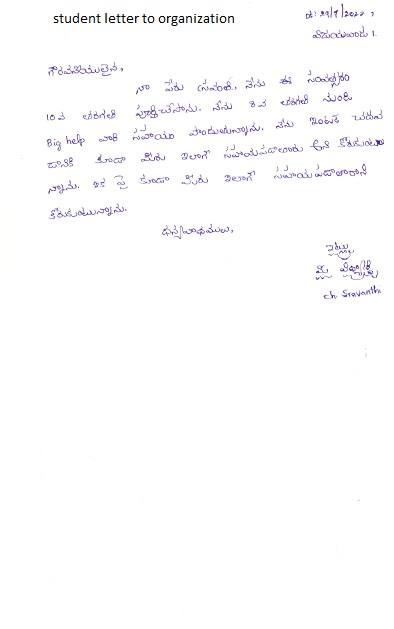 student letter to organization
తే: 29/9/2022,
విజయవాడ 1.
గౌరవనీయులైన,
నా పేరు స్రవంతి. నేను ఈ సంవత్సరం
10వ తరగతి పూర్తిచేసాను. నేను 8వ తరగతి నుండి
Big help వారి సహాయం పొందుతున్నాను. నేను ఇంటర్ చదవ
డానికి కూడా మీరు ఇలాగే సహాయపడాలారు అని కోరుకుంటు
న్నాను. ఇక పై కూడా మీరు ఇలాగే సహాయపడాలారాని
కోరుకుంటున్నాను.
ధన్యవాదములు,
ఇట్లు
మీ
ch Sravanthi